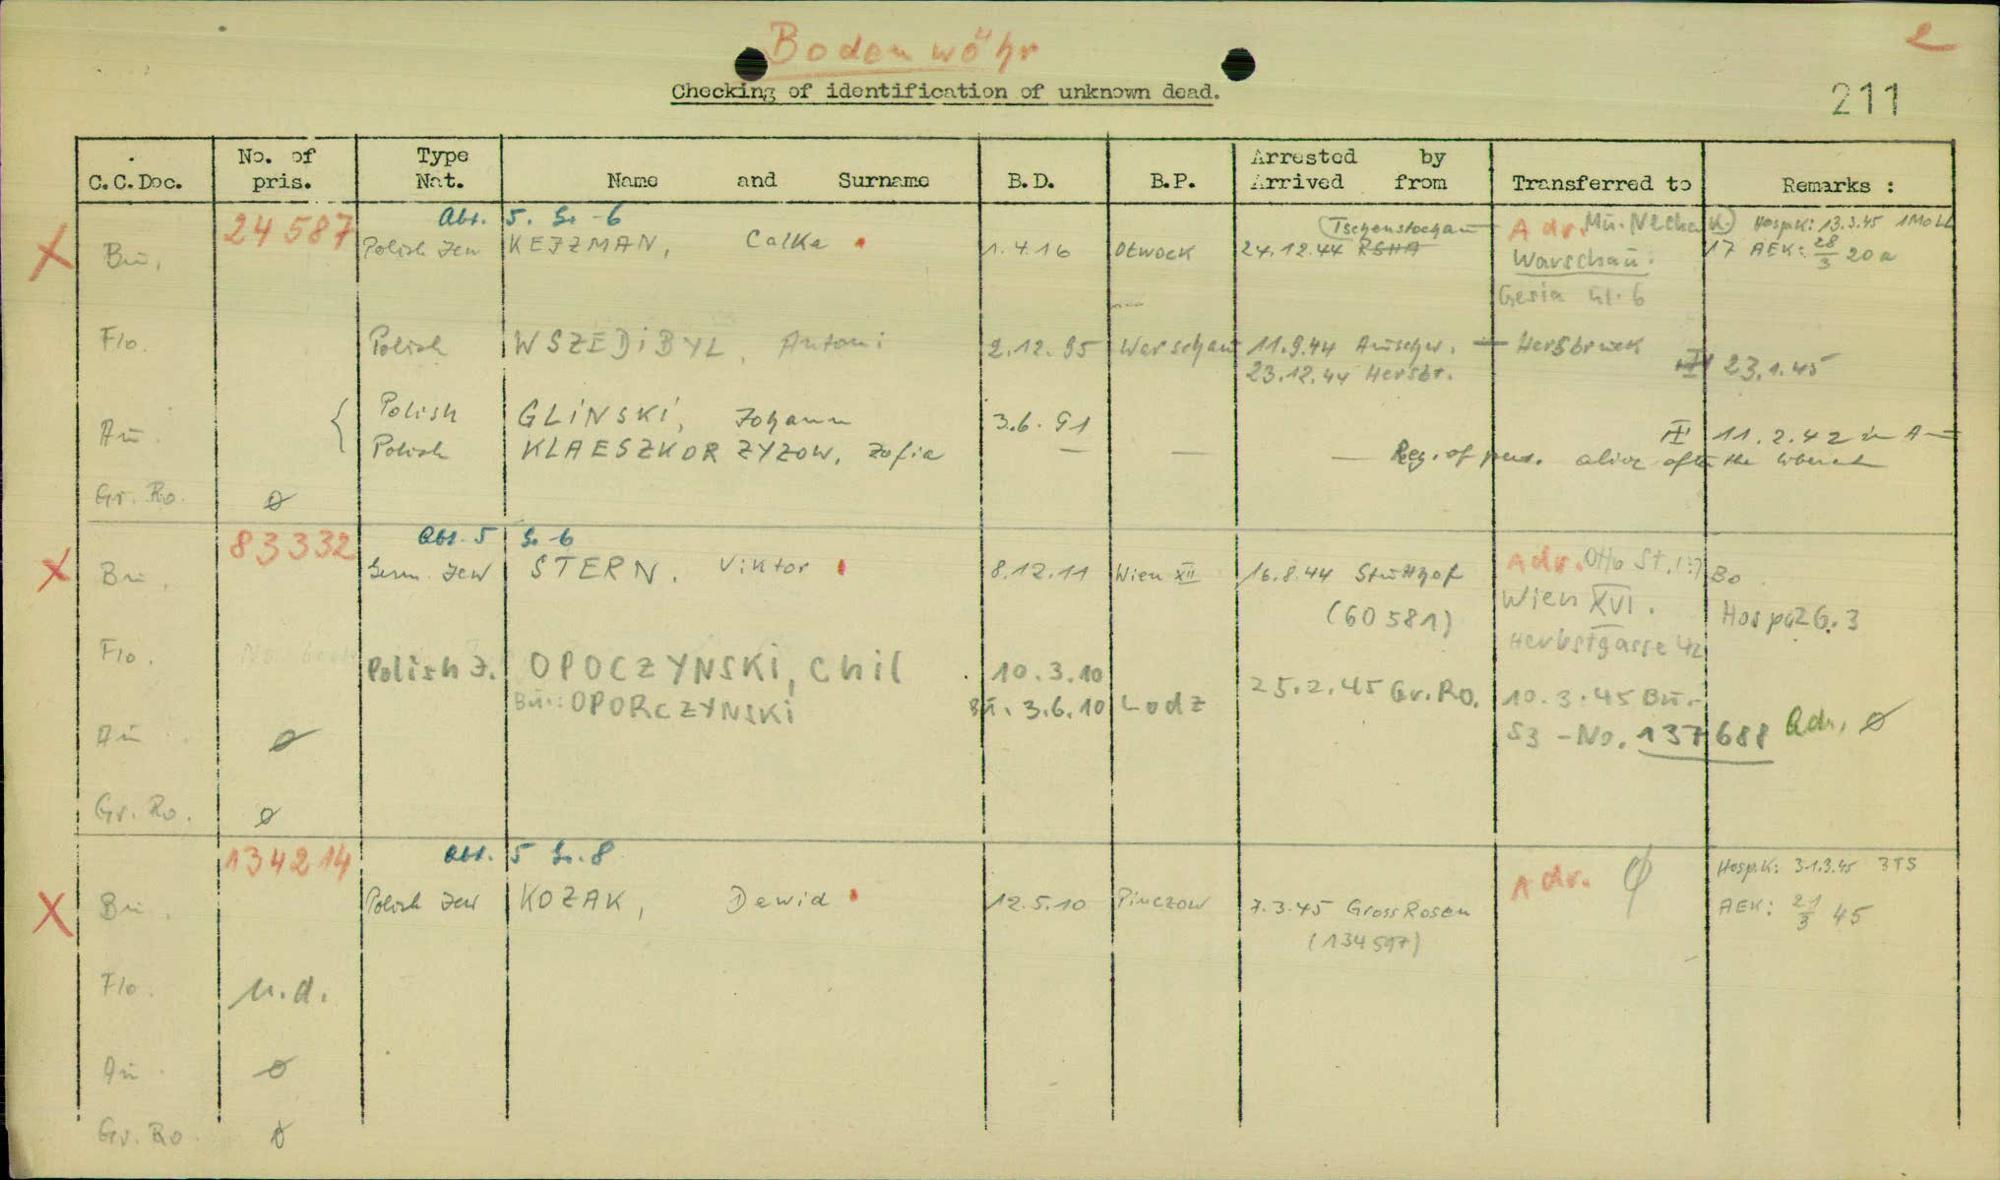 Bodenwöhr
2
Checking of identification of unknown dead.
211
C.C.Doc. No. of pris. Type Nat. Name and Surname B.D. B.P. Arrested by Arrived from Transferred to Remarks :
24587 Abt. 5. Gr. -6 Tschenstochau Adr. Mu. Necha K. Hosp.K: 13.3.45
Bu. Polish Jew KEJZMAN, Calka 1.4.16 Otwock 24.12.44 RSHA Warschau: 17 AEK: 28/3 20a
Gesia Ul. 6
Flo. Polish WSZEDiBYL, Antoni 2.12.95 Warschau 11.9.44 Auschw. — Hersbruck
23.12.44 Hersbr. 23.1.45
Au. Polish GLiNSKi, Johann 3.6.91 11.2.42 in A—
Polish KLAESZKORZYZOW, Zofia — — — Reg. of pers. alive after the liberat
Gr. Ro. ø
83332 Abt. 5 Gr. -6
Bu. Germ. Jew STERN, Viktor 8.12.11 Wien XII 16.8.44 Stutthof Adr. Otto St. Bo
(60581) Wien XVI. Hosp. 26.3
Herbstgasse 42
Flo. Polish J. OPOCZYNSKi, Chil 10.3.10
Bu.: OPORCZYNSKi Bu. 3.6.10 Lodz 25.2.45 Gr.Ro. 10.3.45 Bu.-
Au ø S3 -No. 137688 Adr. ø
Gr. Ro. ø
134214 Abt. 5 Gr. 8
Bu. Polish Jew KOZAK, Dawid 12.5.10 Pinczow 7.3.45 Gross Rosen Adr. ø Hosp.K: 31.3.45
(134597) AEK: 21/3 45
Flo. n.d.
Au ø
Gr. Ro ø